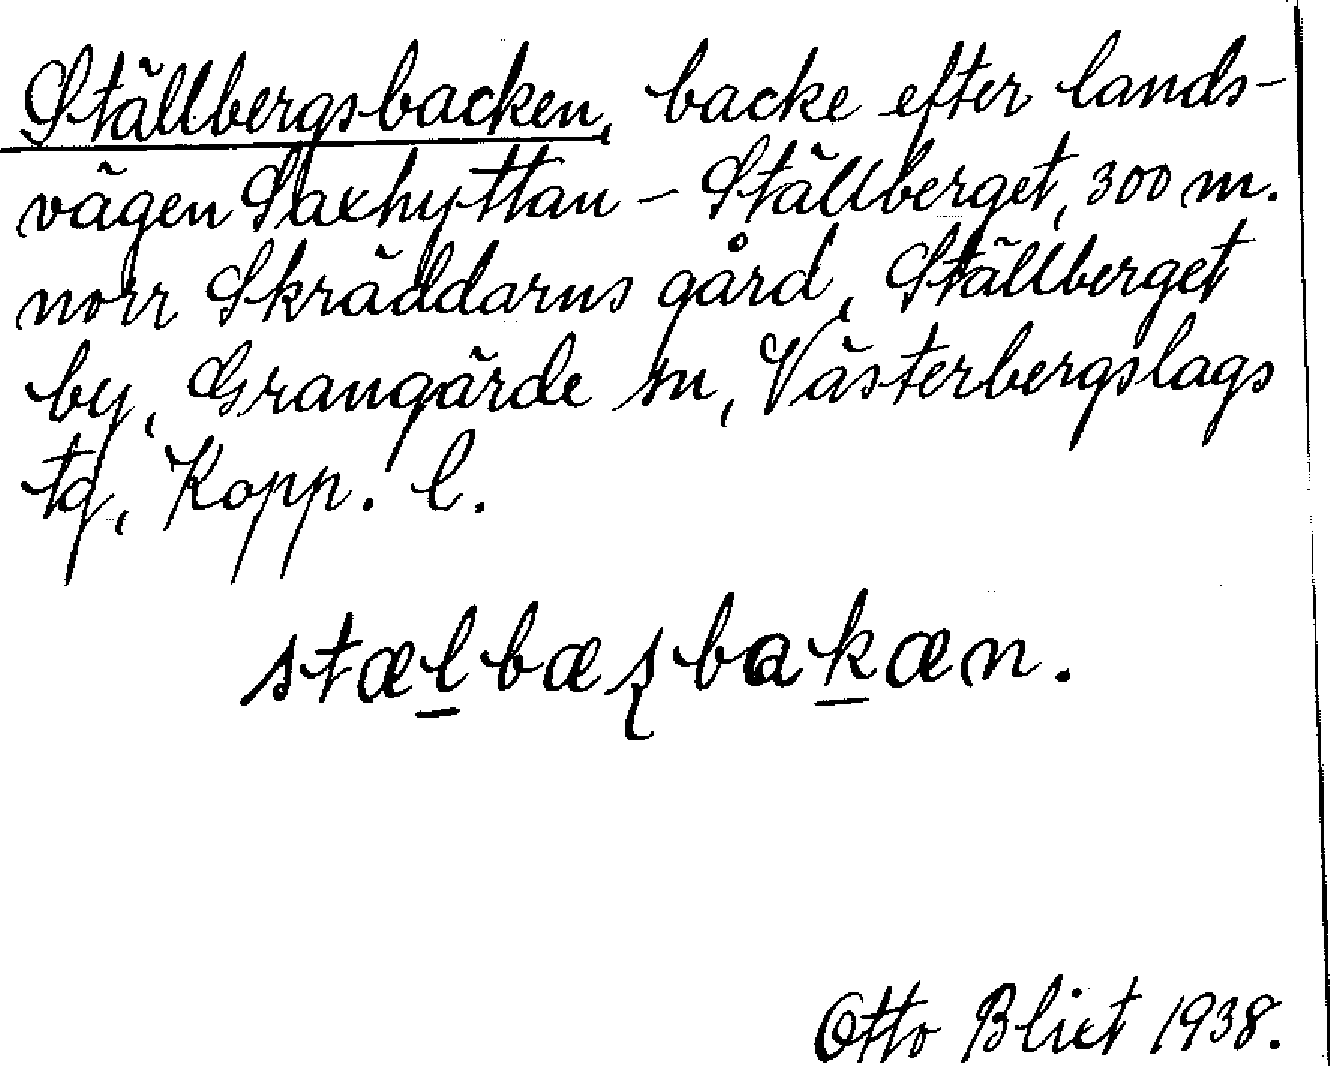 Ställbergsbacken, backe efter lands-
vägen Saxhyttan – Ställberget, 300 m.
norr Skräddarns gård, Ställberget
by, Grangärde sn, Västerbergslags
tg, Kopp. l.
stæl̲bæʂbak̲æn.
Otto Blixt 1938.